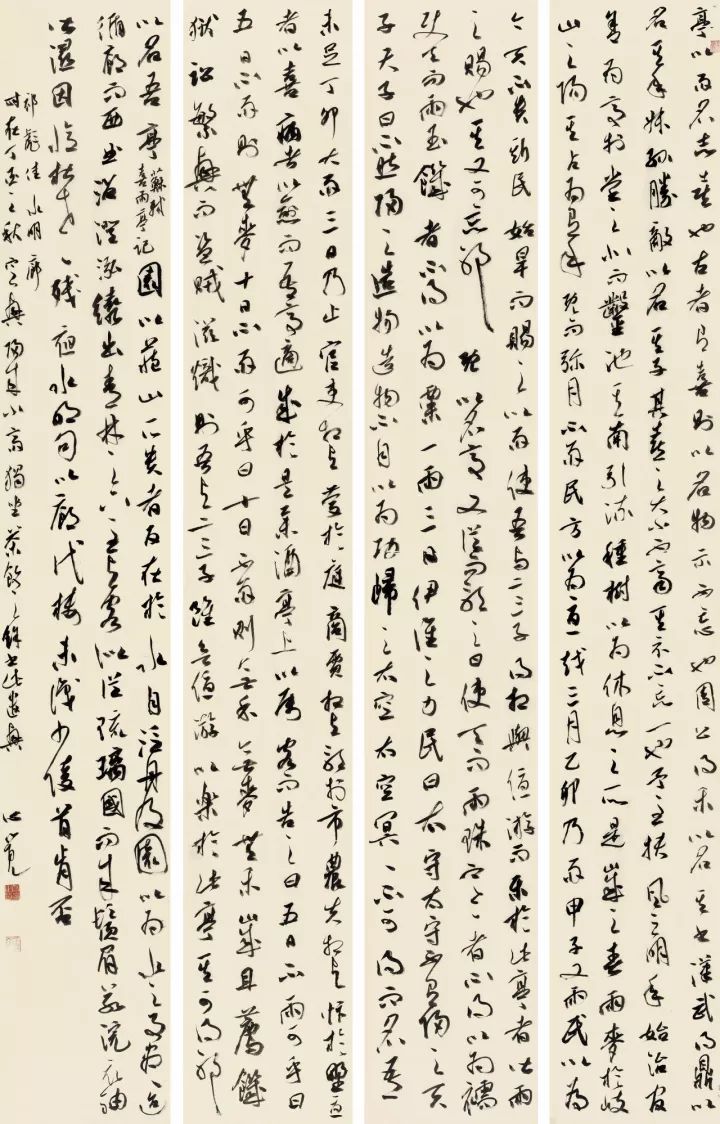 亭以雨名志喜也古者有喜則以名物示不忘也周公得禾以名其書漢武得鼎以
名其年叔孫勝敵以名其子其喜之大小不齊其示不忘一也予至扶風之明年始治官
舍為亭於堂之北而鑿池其南引流種樹以為休息之所是歲之春雨麥於岐
山之陽其占為有年既而彌月不雨民方以為憂越三月乙卯乃雨甲子又雨民以為
今天不遺斯民始旱而賜之以雨使吾與二三子得相與優游而樂於此亭者皆雨
之賜也其又可忘邪既以名亭又從而歌之曰使天而雨珠寒者不得以為襦
使天而雨玉饑者不得以為粟一雨三日伊誰之力民曰太守太守不有歸之天
子天子曰不然歸之造物造物不自以為功歸之太空太空冥冥不可得而名吾
未足丁卯大雨三日乃止官吏相與慶於庭商賈相與歌於市農夫相與忭於野憂
者以喜病者以愈而吾亭適成於是舉酒亭上以屬客而告之曰五日不雨可乎曰
五日不雨則無麥十日不雨可乎曰十日不雨則無禾無麥無禾歲且薦饑
獄訟繁興而盜賊滋熾則吾與二三子雖欲優游以樂於此亭其可得邪
以名吾亭
蘇軾
喜雨亭記
園以藏山所貴者反在於水自泛舟及園以為水之事盡迨
循廊而西曲沼澄泓繞出青林之下主與客似從琉璃國而來鬚眉若浣衣袖
皆濕因憶杜老殘夜水明句以廊代樓未識少陵首肯否
祁彪佳水明廊
時在丁酉之秋小齋獨坐茶飲之餘書此遣興